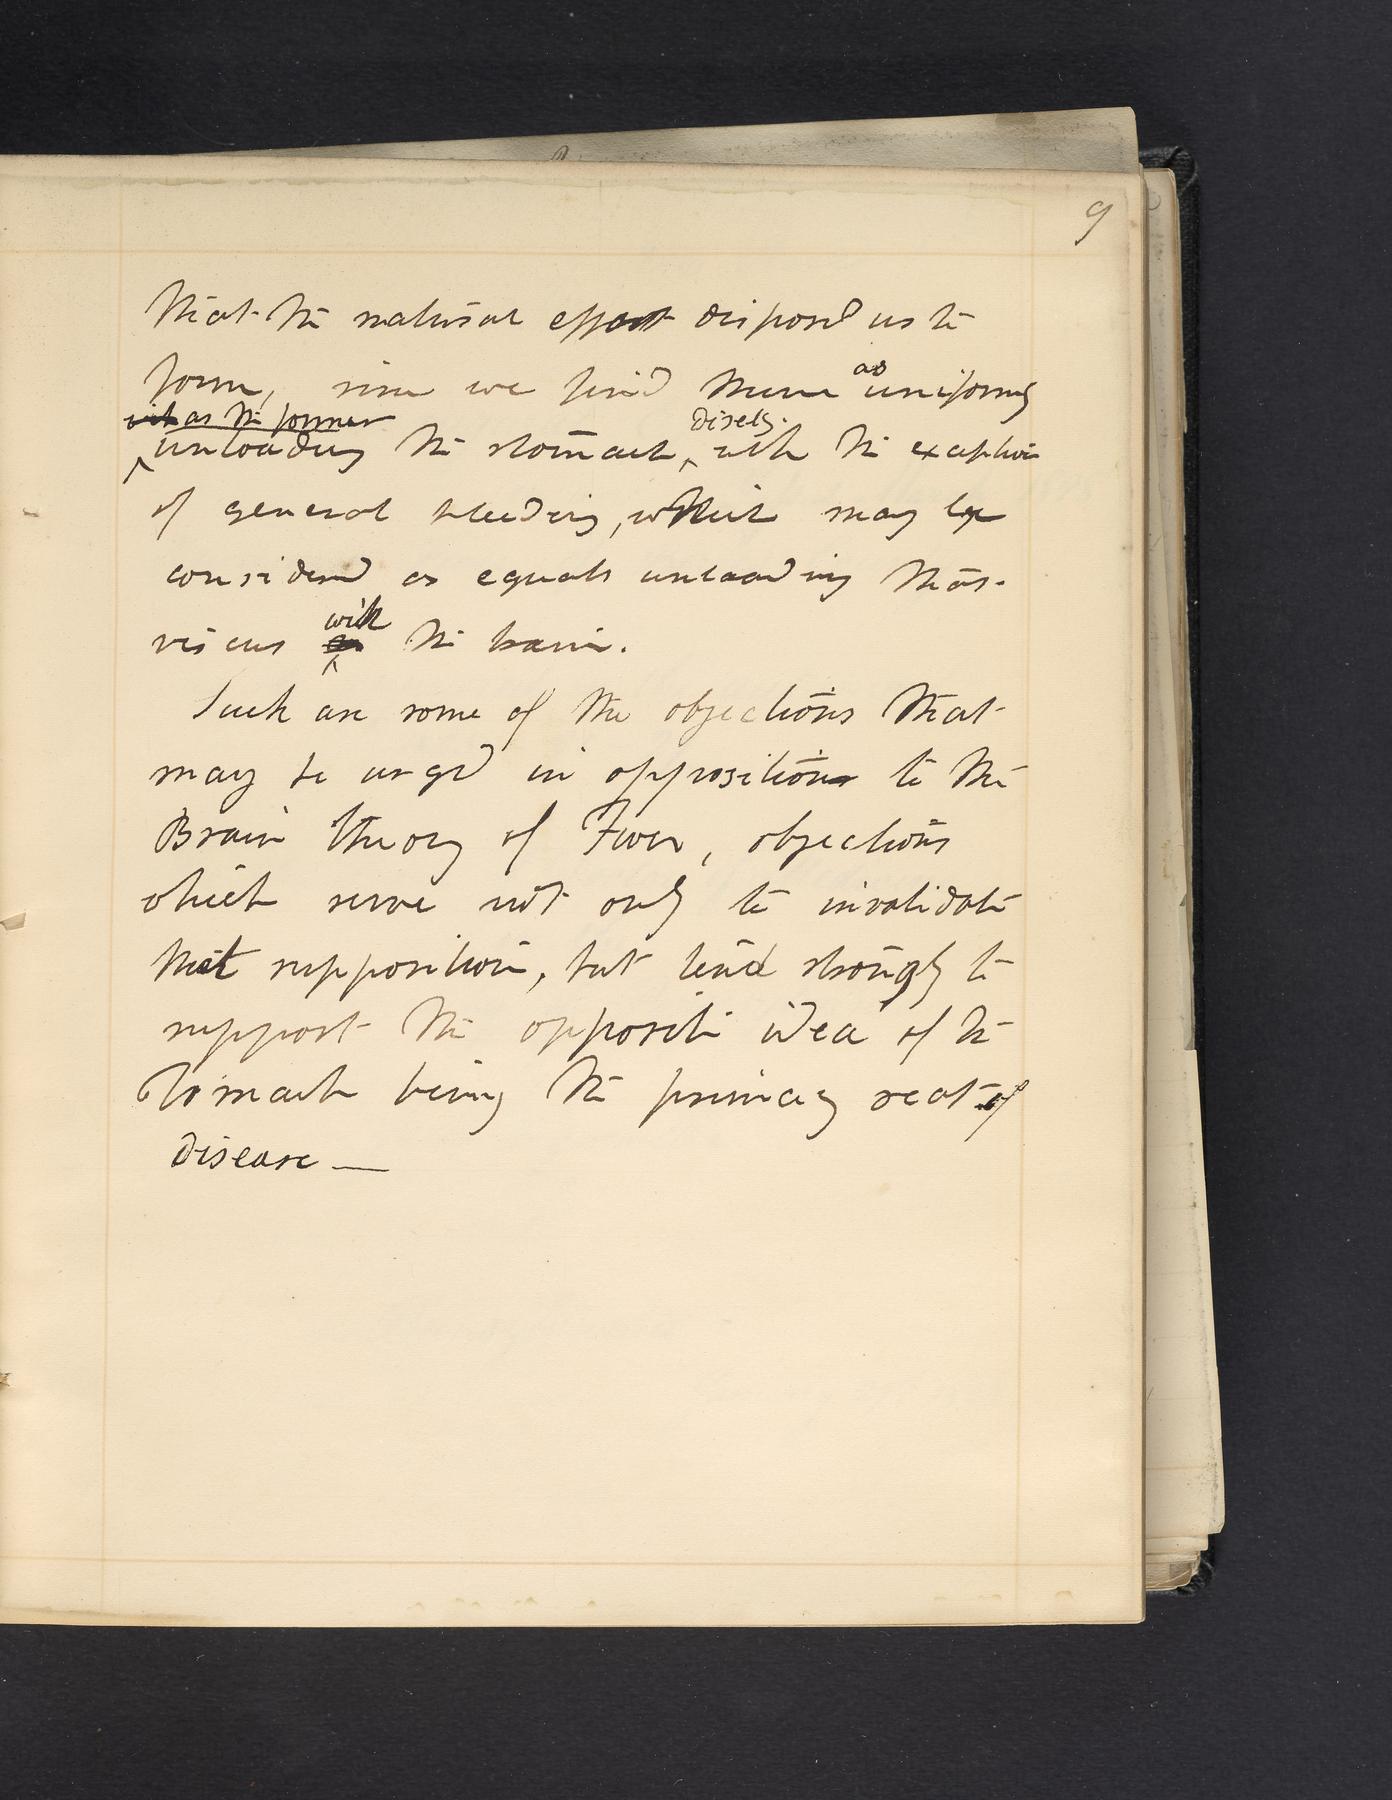 9
that the natural effort disposed us to
form, since we find them as uniformly
as the former directly.
unloading the stomach, with the exception
of general bleeding, which may be
considered as equally unloading that
with
viscus the brain.
Such are some of the objections that
may be urged in opposition to the
Brain theory of Fever, objections
which serve not only to invalidate
that supposition, but tend strongly to
support the opposite idea of the
Stomach being the primary seat of
disease —